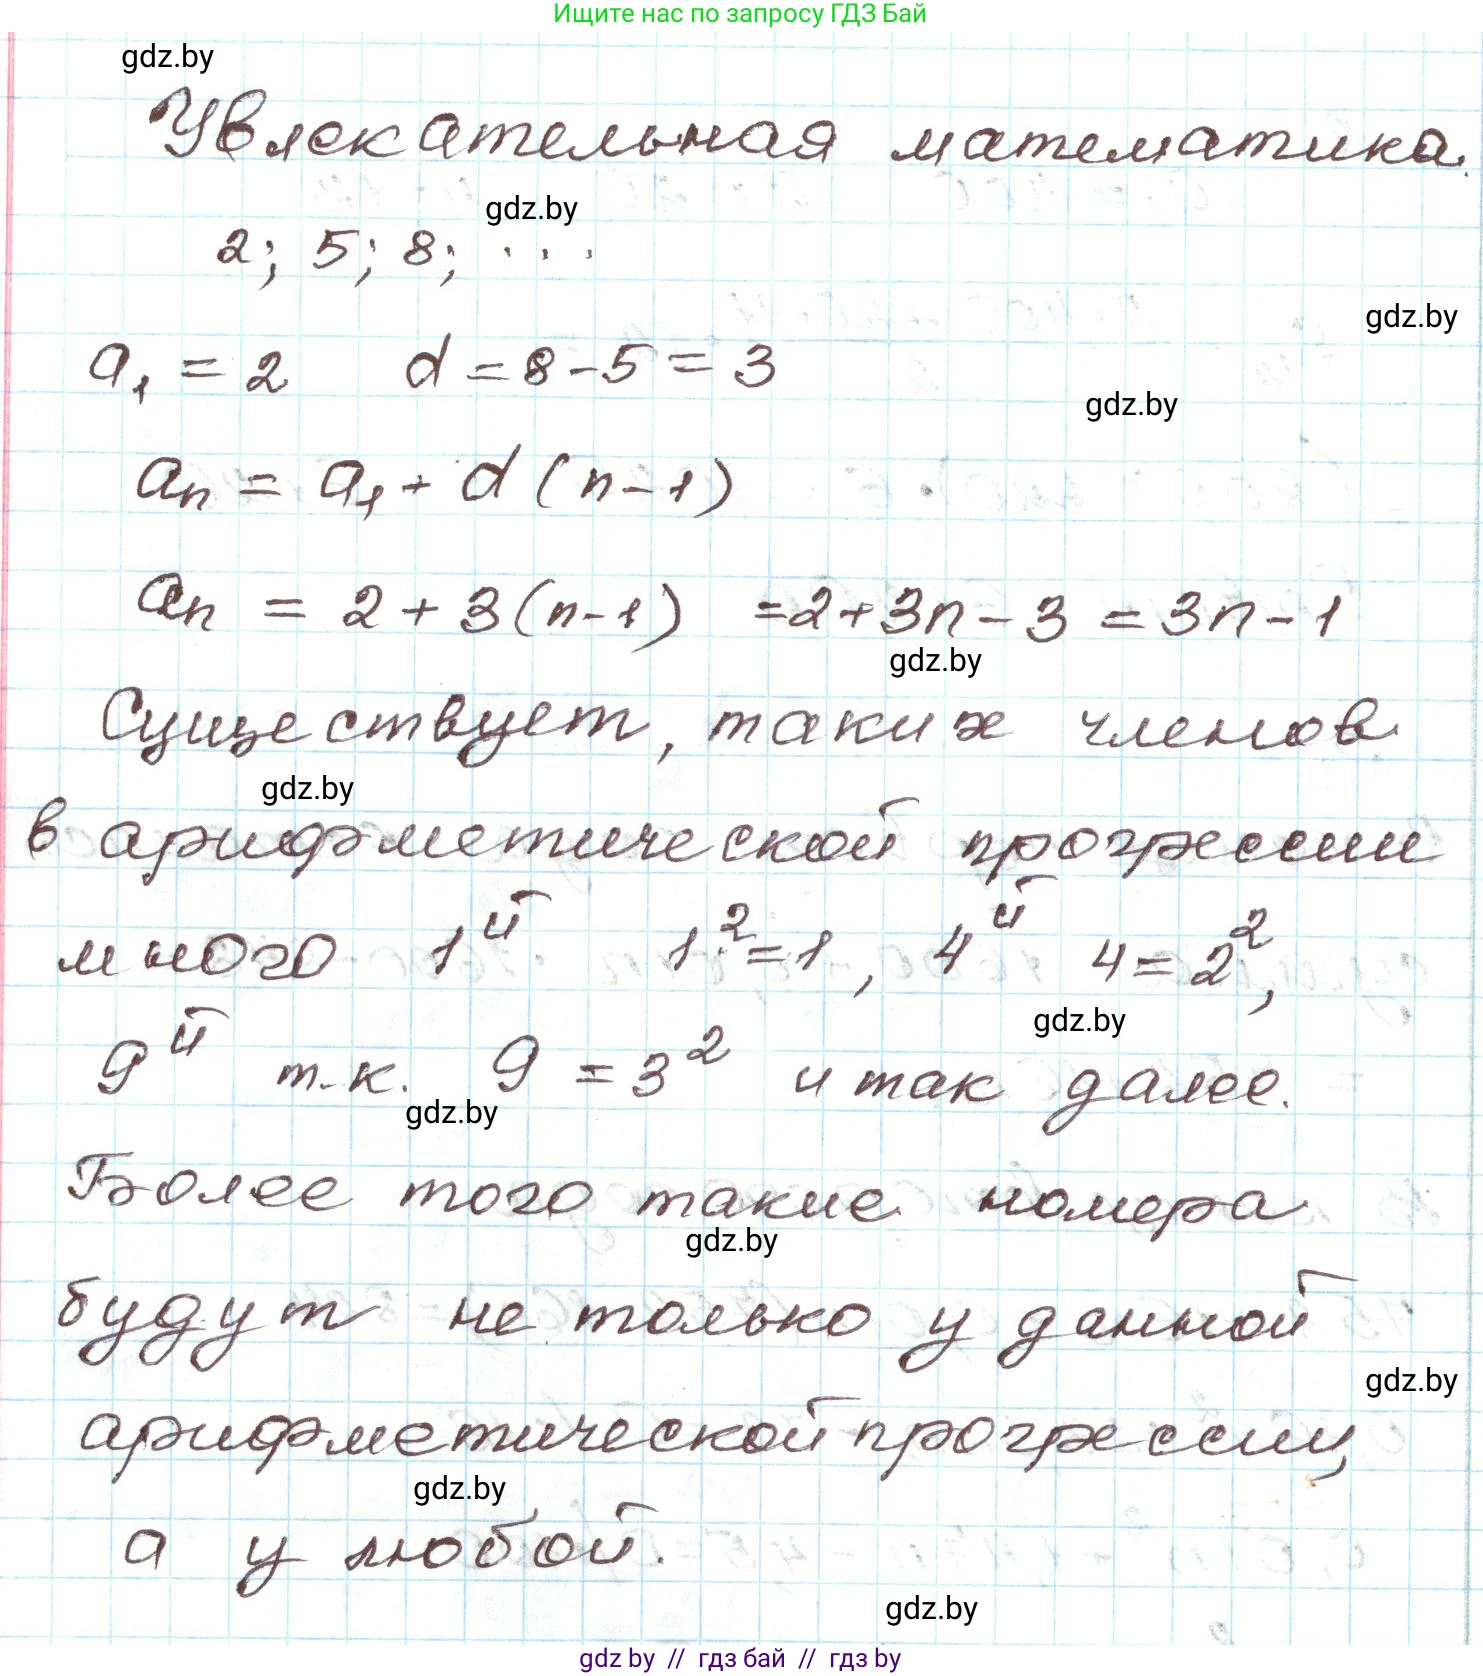 Ищите нас по запросу ГДЗ Бай
gdz.by
Увлекательная математика.
gdz.by
2; 5; 8; ...
gdz.by
a₁ = 2 d = 8 - 5 = 3
gdz.by
aₙ = a₁ + d (n - 1)
aₙ = 2 + 3(n - 1) = 2 + 3n - 3 = 3n - 1
gdz.by
Существует, таких членов
gdz.by
в арифметической прогрессии
много 1й 1² = 1, 4й 4 = 2²,
gdz.by
9й т.к. 9 = 3² и так далее.
gdz.by
Более того такие номера
gdz.by
будут не только у данной
gdz.by
арифметической прогрессии,
gdz.by
а у любой.
gdz.by
gdz.by // гдз бай // гдз by